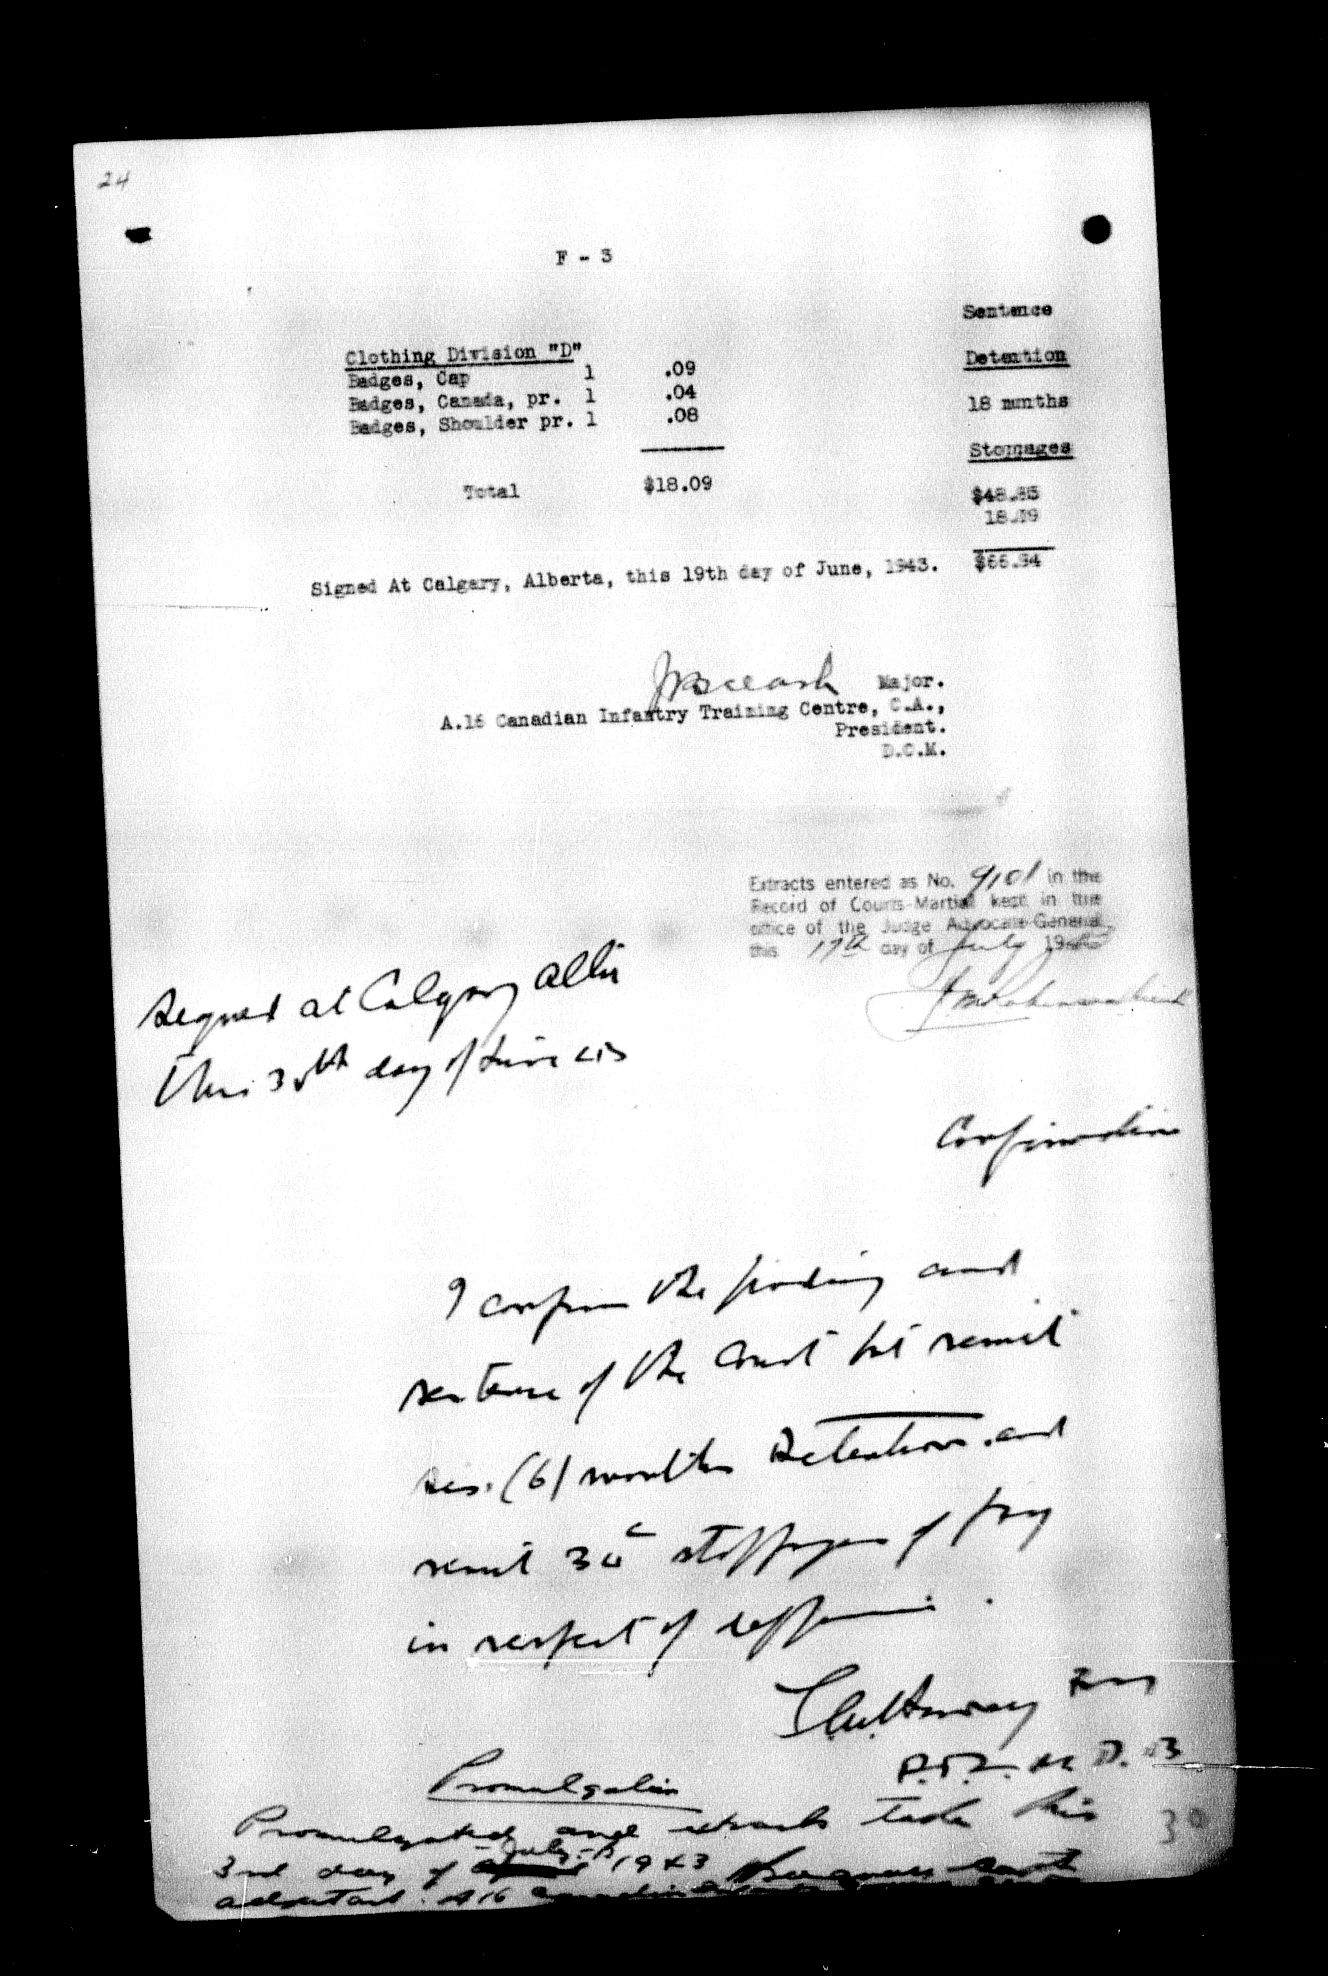 24
F - 3
Sentence
Clothing Division "D"
Detention
Badges, Cap 1 .09
Badges, Canada, pr. 1 .04
18 months
Badges, Shoulder pr. 1 .08
Stoppages
Total $18.09
$48.85
18.09
$66.94
Signed At Calgary, Alberta, this 19th day of June, 1943.
Major.
A.16 Canadian Infantry Training Centre, C.A.,
President.
D.C.M.
Extracts entered as No. 9101 in the
Record of Courts-Martial kept in the
office of the Judge Advocate-General
this 17th day of July 19
Signed at Calgary Alta
this 30th day of June
Confirmation
I confirm the finding and
sentence of the Court but remit
six (6) months detention and
remit stoppages of pay
in respect of
Promulgation
Promulgated and extracts taken this
3rd day of July 1943
adjutant A16
30